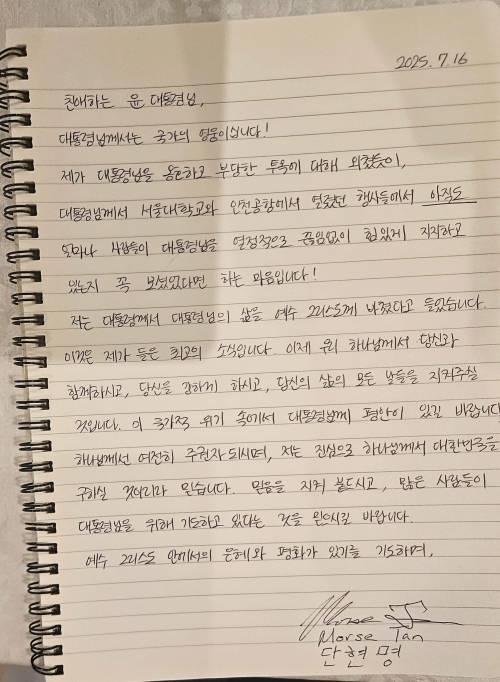 2025. 7. 16
친애하는 윤 대통령님,
대통령님께서는 국가의 영웅이십니다!
제가 대통령님을 옹호하고 부당한 투옥에 대해 외쳤듯이,
대통령님께서 서울대학교와 인천공항에서 열렸던 행사들에서 아직도
얼마나 사람들이 대통령님을 열정적으로 끊임없이 힘있게 지지하고
있는지 꼭 보셨었다면 하는 마음입니다!
저는 대통령께서 대통령님의 삶을 예수 그리스도께 바쳤다고 들었습니다.
이것은 제가 들은 최고의 소식입니다. 이제 우리 하나님께서 당신과
함께하시고, 당신을 강하게 하시고, 당신의 삶의 모든 날들을 지켜주실
것입니다. 이 국가적 위기 속에서 대통령님께 평안이 있길 바랍니다
하나님께선 여전히 주권자 되시며, 저는 진심으로 하나님께서 대한민국을
구하실 것이리라 믿습니다. 믿음을 지켜 붙드시고, 많은 사람들이
대통령님을 위해 기도하고 있다는 것을 믿으시길 바랍니다.
예수 그리스도 안에서의 은혜와 평화가 있기를 기도하며,
Morse Tan
Morse Tan
단현명